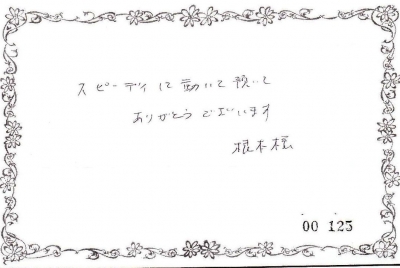 スピーディに動いて頂いて
ありがとうございます
根本様
00 123